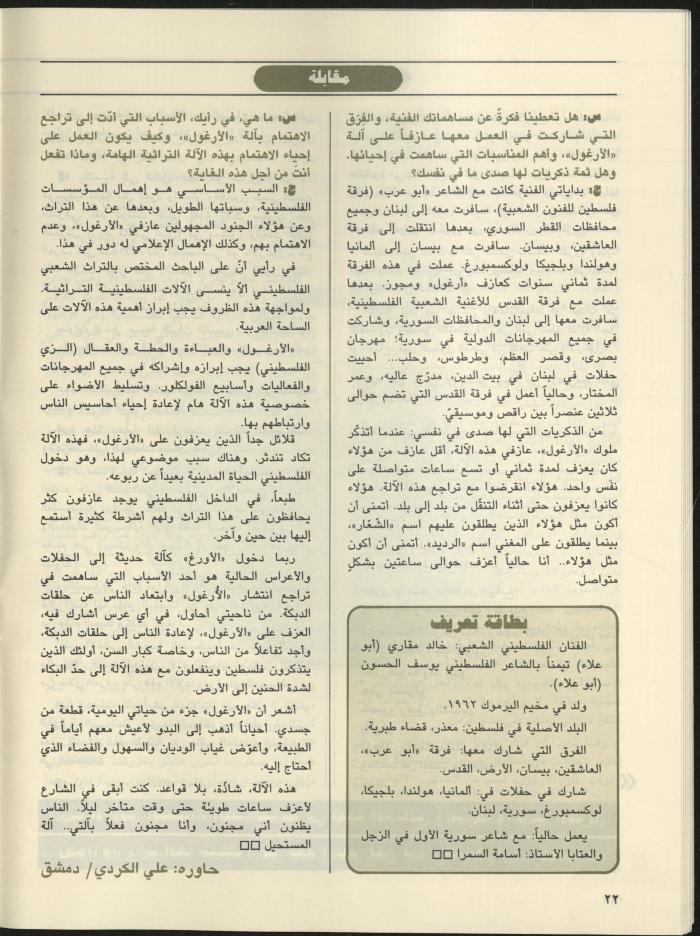 مقابلة
س: هل تعطينا فكرةً عن مساهماتك الفنية، والفِرَق
التي شاركت في العمل معها عازفاً على آلة
«الأرغول»، وأهم المناسبات التي ساهمت في إحيائها.
وهل ثمة ذكريات لها صدى ما في نفسك؟
ج: بداياتي الفنية كانت مع الشاعر «أبو عرب» (فرقة
فلسطين للفنون الشعبية)، سافرت معه إلى لبنان وجميع
محافظات القطر السوري، بعدها انتقلت إلى فرقة
العاشقين، وبيسان. سافرت مع بيسان إلى ألمانيا
وهولندا وبلجيكا ولوكسمبورغ. عملت في هذه الفرقة
لمدة ثماني سنوات كعازف «أرغول» ومجوز. بعدها
عملت مع فرقة القدس للأغنية الشعبية الفلسطينية،
سافرت معها إلى لبنان والمحافظات السورية، وشاركت
في جميع المهرجانات الدولية في سورية؛ مهرجان
بصرى، وقصر العظم، وطرطوس، وحلب... أحييت
حفلات في لبنان في بيت الدين، مدرّج عاليه، وعمر
المختار، وحالياً أعمل في فرقة القدس التي تضم حوالى
ثلاثين عنصراً بين راقص وموسيقيّ.
من الذكريات التي لها صدى في نفسي: عندما أتذكّر
ملوك «الأرغول»، عازفي هذه الآلة، أقل عازف من هؤلاء
كان يعزف لمدة ثماني أو تسع ساعات متواصلة على
نفَس واحد. هؤلاء انقرضوا مع تراجع هذه الآلة. هؤلاء
كانوا يعزفون حتى أثناء التنقّل من بلد إلى بلد. أتمنى أن
أكون مثل هؤلاء الذين يطلقون عليهم اسم «الشعّار»،
بينما يطلقون على المغني اسم «الرديد». أتمنى أن أكون
مثل هؤلاء.. أنا حالياً أعزف حوالى ساعتين بشكلٍ
متواصل.
بطاقة تعريف
الفنان الفلسطيني الشعبي: خالد مقاري (أبو
علاء) تيمناً بالشاعر الفلسطيني يوسف الحسون
(أبو علاء).
ولد في مخيم اليرموك ١٩٦٢.
البلد الأصلية في فلسطين: معذر، قضاء طبرية.
الفرق التي شارك معها: فرقة «أبو عرب»،
العاشقين، بيسان، الأرض، القدس.
شارك في حفلات في: ألمانيا، هولندا، بلجيكا،
لوكسمبورغ، سورية، لبنان.
يعمل حالياً: مع شاعر سورية الأول في الزجل
والعتابا الأستاذ: أسامة السمرا □□
س: ما هي، في رأيك، الأسباب التي أدّت إلى تراجع
الاهتمام بآلة «الأرغول»، وكيف يكون العمل على
إحياء الاهتمام بهذه الآلة التراثية الهامة، وماذا تفعل
أنتَ من أجل هذه الغاية؟
ج: السبب الأساسي هو إهمال المؤسسات
الفلسطينية، وسباتها الطويل، وبعدها عن هذا التراث،
وعن هؤلاء الجنود المجهولين عازفي «الأرغول»، وعدم
الاهتمام بهم، وكذلك الإهمال الإعلامي له دور في هذا.
في رأيي أنّ على الباحث المختص بالتراث الشعبي
الفلسطيني ألا ينسى الآلات الفلسطينية التراثية.
ولمواجهة هذه الظروف يجب إبراز أهمية هذه الآلات على
الساحة العربية.
«الأرغول» والعباءة والحطة والعقال (الزي
الفلسطيني) يجب إبرازه وإشراكه في جميع المهرجانات
والفعاليات وأسابيع الفولكلور. وتسليط الأضواء على
خصوصية هذه الآلة هام لإعادة إحياء أحاسيس الناس
وارتباطهم بها.
قلائل جداً الذين يعزفون على «الأرغول»، فهذه الآلة
تكاد تندثر. وهناك سبب موضوعي لهذا، وهو دخول
الفلسطيني الحياة المدينية بعيداً عن ربوعه.
طبعاً، في الداخل الفلسطيني يوجد عازفون كثر
يحافظون على هذا التراث ولهم أشرطة كثيرة أستمع
إليها بين حين وآخر.
ربما دخول «الأورغ» كآلة حديثة إلى الحفلات
والأعراس الحالية هو أحد الأسباب التي ساهمت في
تراجع انتشار «الأُرغول» وابتعاد الناس عن حلقات
الدبكة. من ناحيتي أحاول، في أي عرس أشارك فيه،
العزف على «الأرغول»، لإعادة الناس إلى حلقات الدبكة،
وأجد تفاعلاً من الناس، وخاصة كبار السن، أولئك الذين
يتذكرون فلسطين وينفعلون مع هذه الآلة إلى حدّ البكاء
لشدة الحنين إلى الأرض.
أشعر أن «الأرغول» جزء من حياتي اليومية، قطعة من
جسدي. أحياناً أذهب إلى البدو لأعيش معهم أياماً في
الطبيعة، وأعوّض غياب الوديان والسهول والفضاء الذي
أحتاج إليه.
هذه الآلة، شاذّة، بلا قواعد. كنت أبقى في الشارع
لأعزف ساعات طويلة حتى وقت متأخر ليلاً. الناس
يظنون أني مجنون، وأنا مجنون فعلاً بآلتي.. آلة
المستحيل □□
حاوره: علي الكردي/ دمشق
٢٢